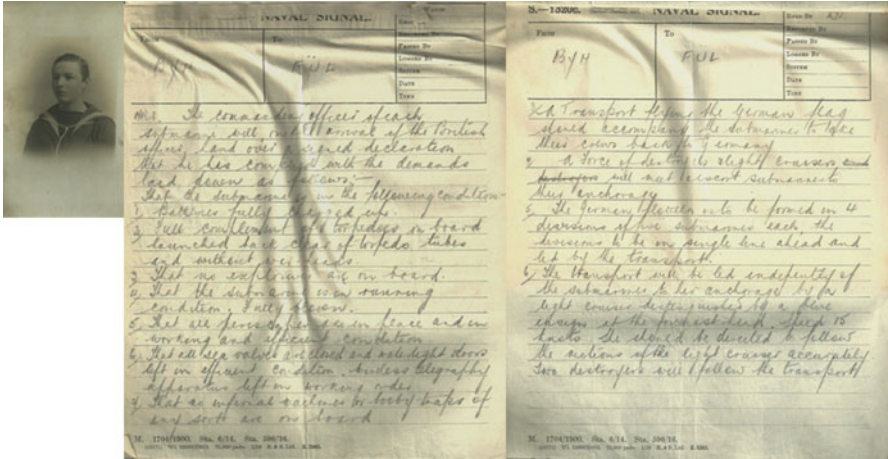 NAVAL SIGNAL.
From
To
Passed By
Logged By
System
Date
Time
BYH
FÜL
The commanding officer of each
submarine will, on the arrival of the British
officer, hand over a signed declaration
that he has complied with the demands
laid down as follows:-
That the submarine is in the following condition-
1. Batteries fully charged up.
2. Full complement of torpedoes on board
launched back clear of torpedo tubes
and without war heads.
3. That no explosives are on board.
4. That the submarine is in running
condition, fully blown.
5. That all periscopes are in place and in
working and efficient condition
6. That all sea valves are closed and watertight doors
left in efficient condition. wireless telegraphy
apparatus left in working order
7. That no infernal machines or booby traps of
any sort are on board
M. 1704/1900. Sta. 6/14. Sta. 596/16.
S.—1320c.
NAVAL SIGNAL.
From
To
Passed By
Logged By
System
Date
Time
BYH
FUL
A Transport flying the German flag
should accompany the submarines to take
their crews back to Germany
A Force of destroyers & light cruisers
will meet & escort submarines to
their anchorage
5. The German flotilla is to be formed in 4
divisions of five submarines each, the
divisions to be in single line ahead and
led by the transport.
6. The transport will be led independently of
the submarines to her anchorage by a
light cruiser distinguished by a blue
ensign at the foremast head. Speed 15
knots. She should be directed to follow
the motions of the light cruiser accurately
Two destroyers will follow the transport
M. 1704/1900. Sta. 6/14. Sta. 596/16.